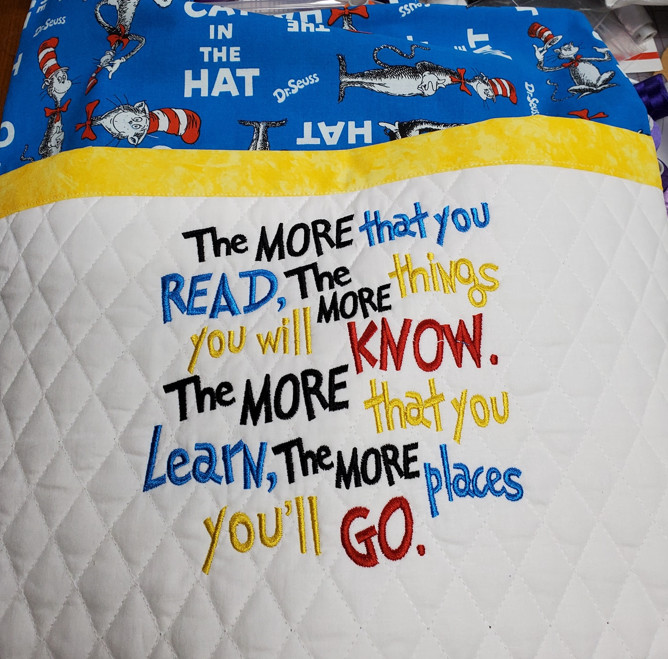 Dr. Seuss
CAT
IN
THE
HAT
THE
Seuss
Dr. Seuss
Dr. Seuss
HAT
The MORE that you
READ, The MORE things
you will KNOW.
The MORE that you
Learn, The MORE places
you'll GO.